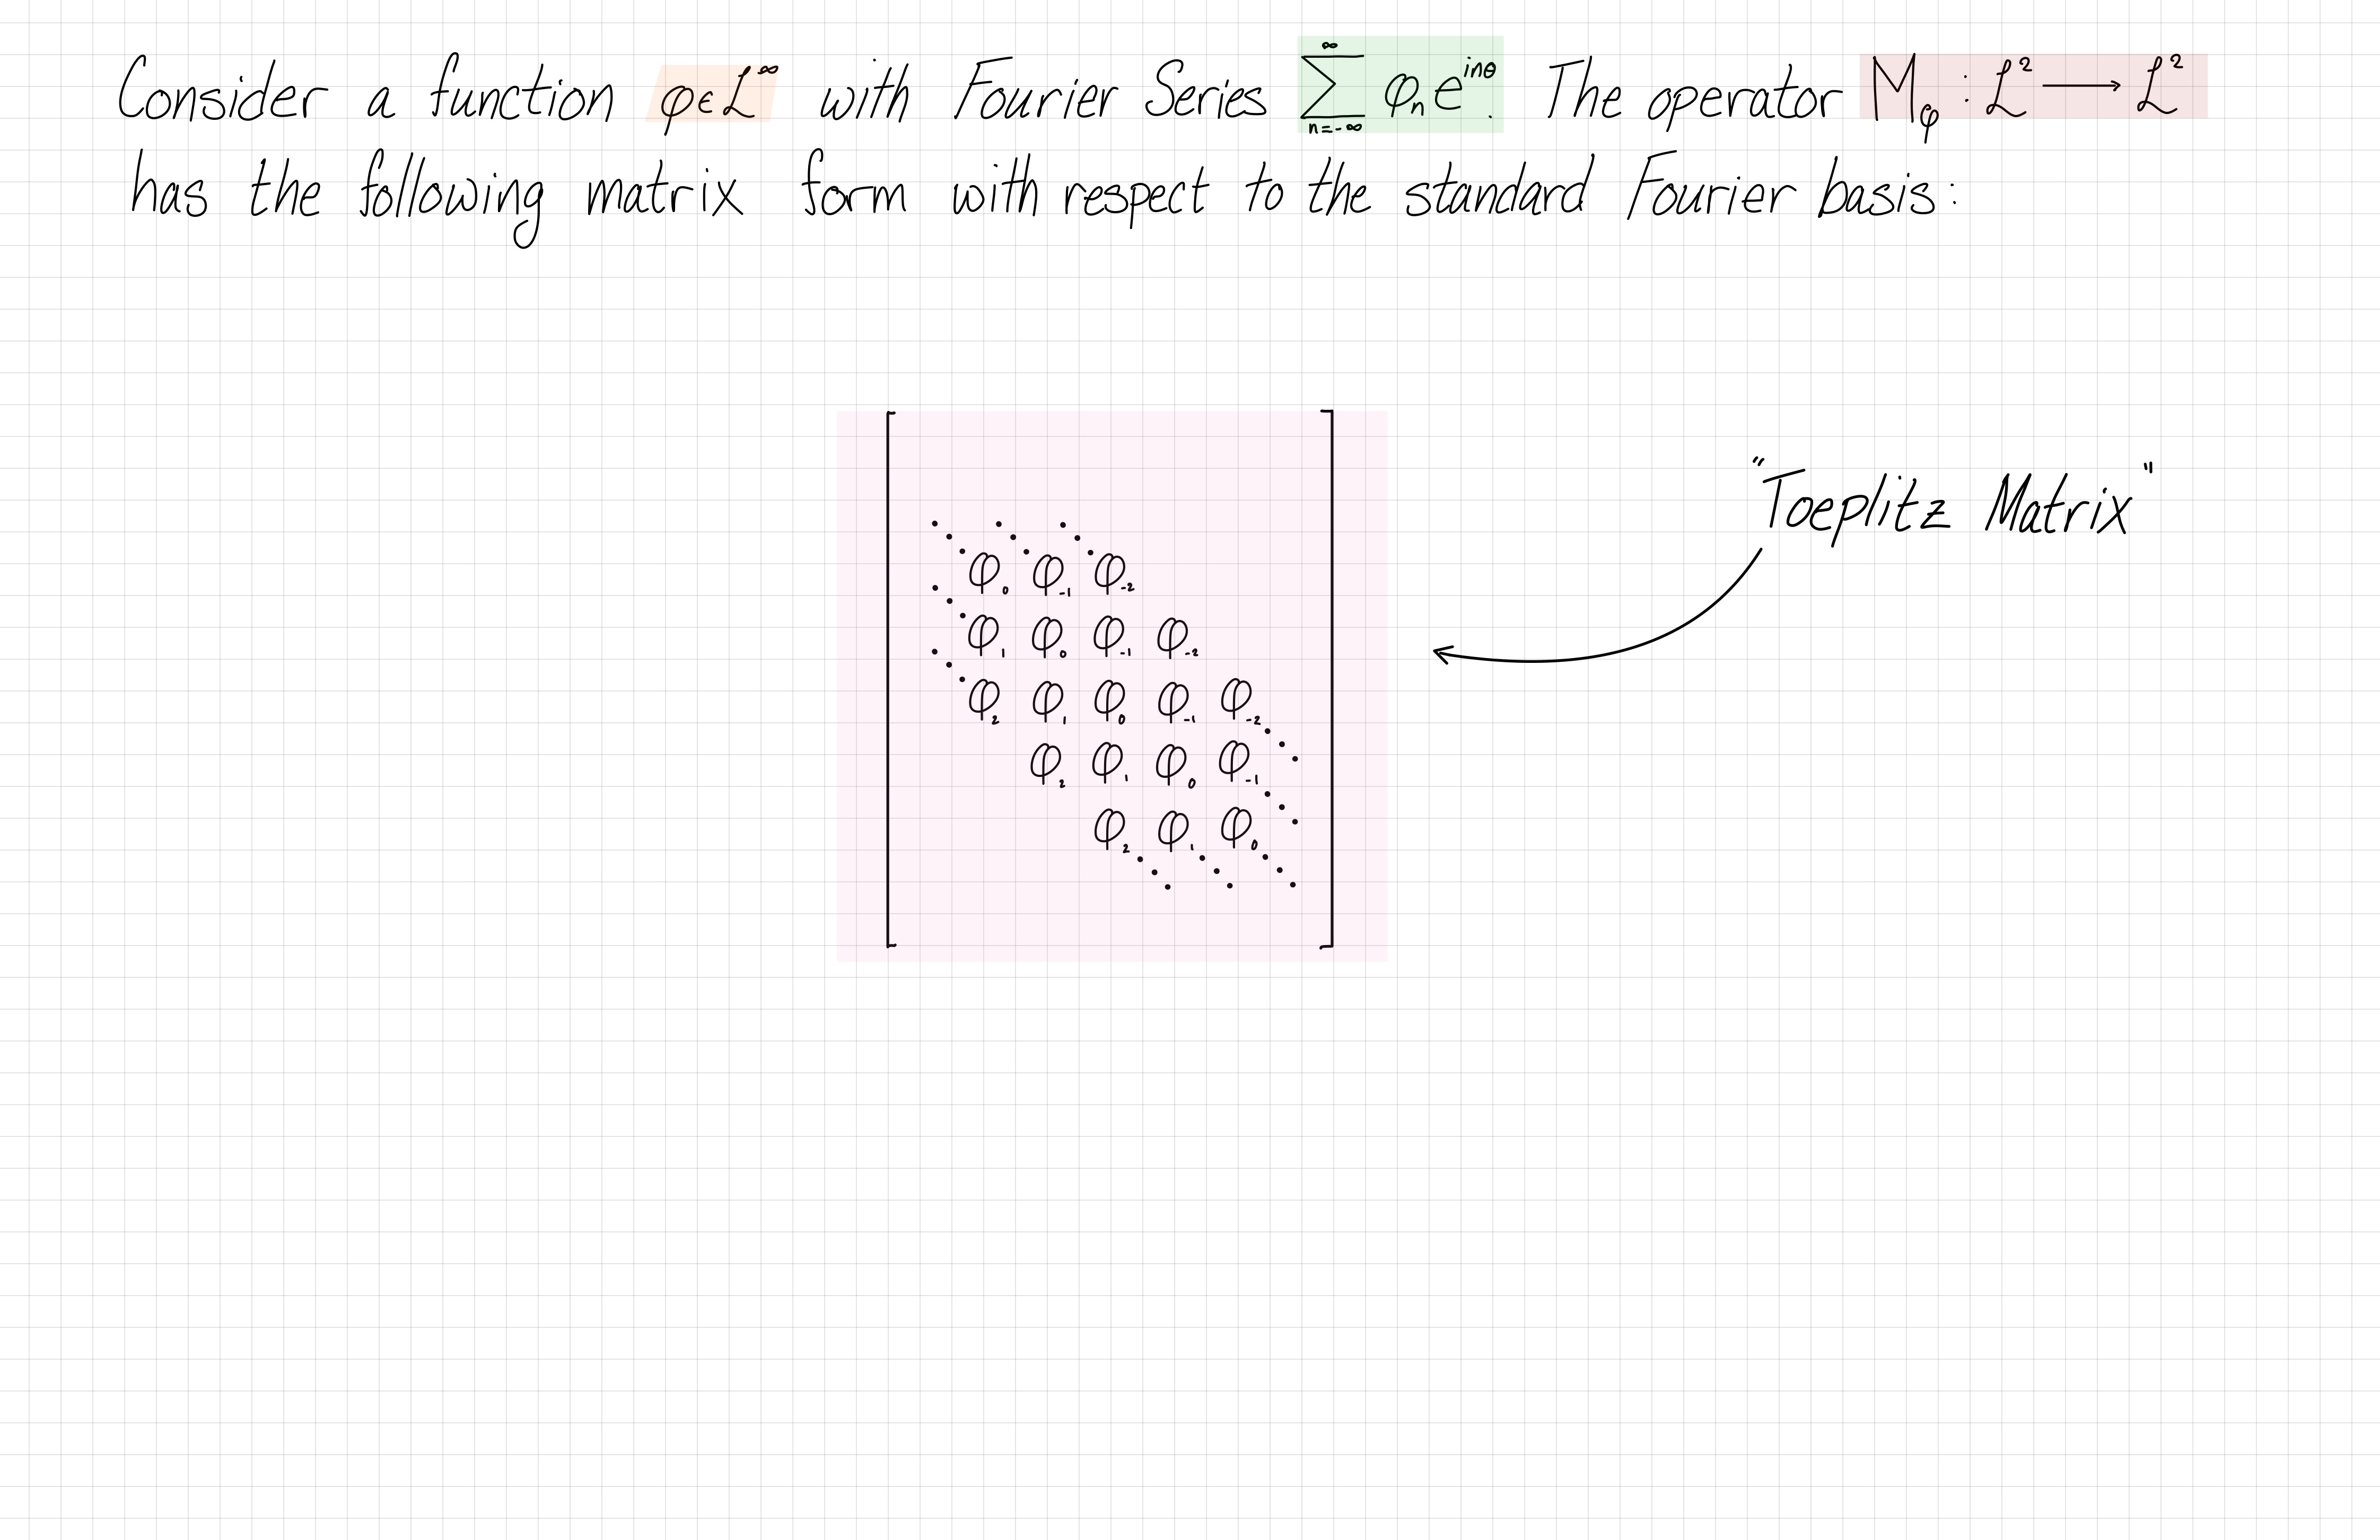 Consider a function φ ∈ L^∞ with Fourier Series ∑_{n=-∞}^{∞} φ_n e^{inθ}. The operator M_φ : L² ⟶ L²
has the following matrix form with respect to the standard Fourier basis:
"Toeplitz Matrix"
⋱ ⋱ ⋱
⋱ φ_0 φ_{-1} φ_{-2}
⋱ φ_1 φ_0 φ_{-1} φ_{-2}
φ_2 φ_1 φ_0 φ_{-1} φ_{-2} ⋱
φ_2 φ_1 φ_0 φ_{-1} ⋱
φ_2 φ_1 φ_0 ⋱
⋱ ⋱